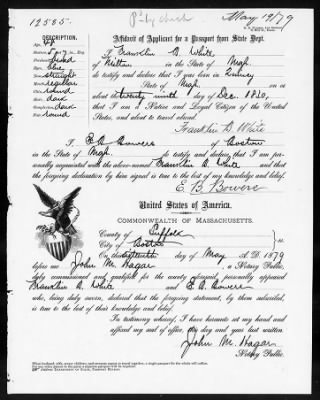 12585.
May 19/79
DESCRIPTION. Affidavit of Applicant for a Passport from State Dept.
I Franklin B. White
of Milton in the State of Mass.
do testify and declare that I was born in Quincy
in the State of Mass. on or
about the twenty ninth of Dec. 1830,
that I am a Native and Legal Citizen of the United
States, and about to travel abroad.
Franklin B. White
I, E B Bowers of Boston
in the State of Mass. do testify and declare that I am per-
sonally acquainted with the above-named Franklin B. White and that
the foregoing declaration by him signed is true to the best of my knowledge and belief.
E. B. Bowers
United States of America.
COMMONWEALTH OF MASSACHUSETTS.
County of Suffolk
City of Boston ss.
On this nineteenth day of May A. D. 1879
before me John M. Hagar, a Notary Public,
duly commissioned and qualified for the county aforesaid, personally appeared
Franklin B. White and E B Bowers
who, being duly sworn, declared that the foregoing statement, by them subscribed,
is true to the best of their knowledge and belief.
In testimony whereof, I have hereunto set my hand and
affixed my seal of office, the day and year last written.
John M. Hagar
Notary Public.